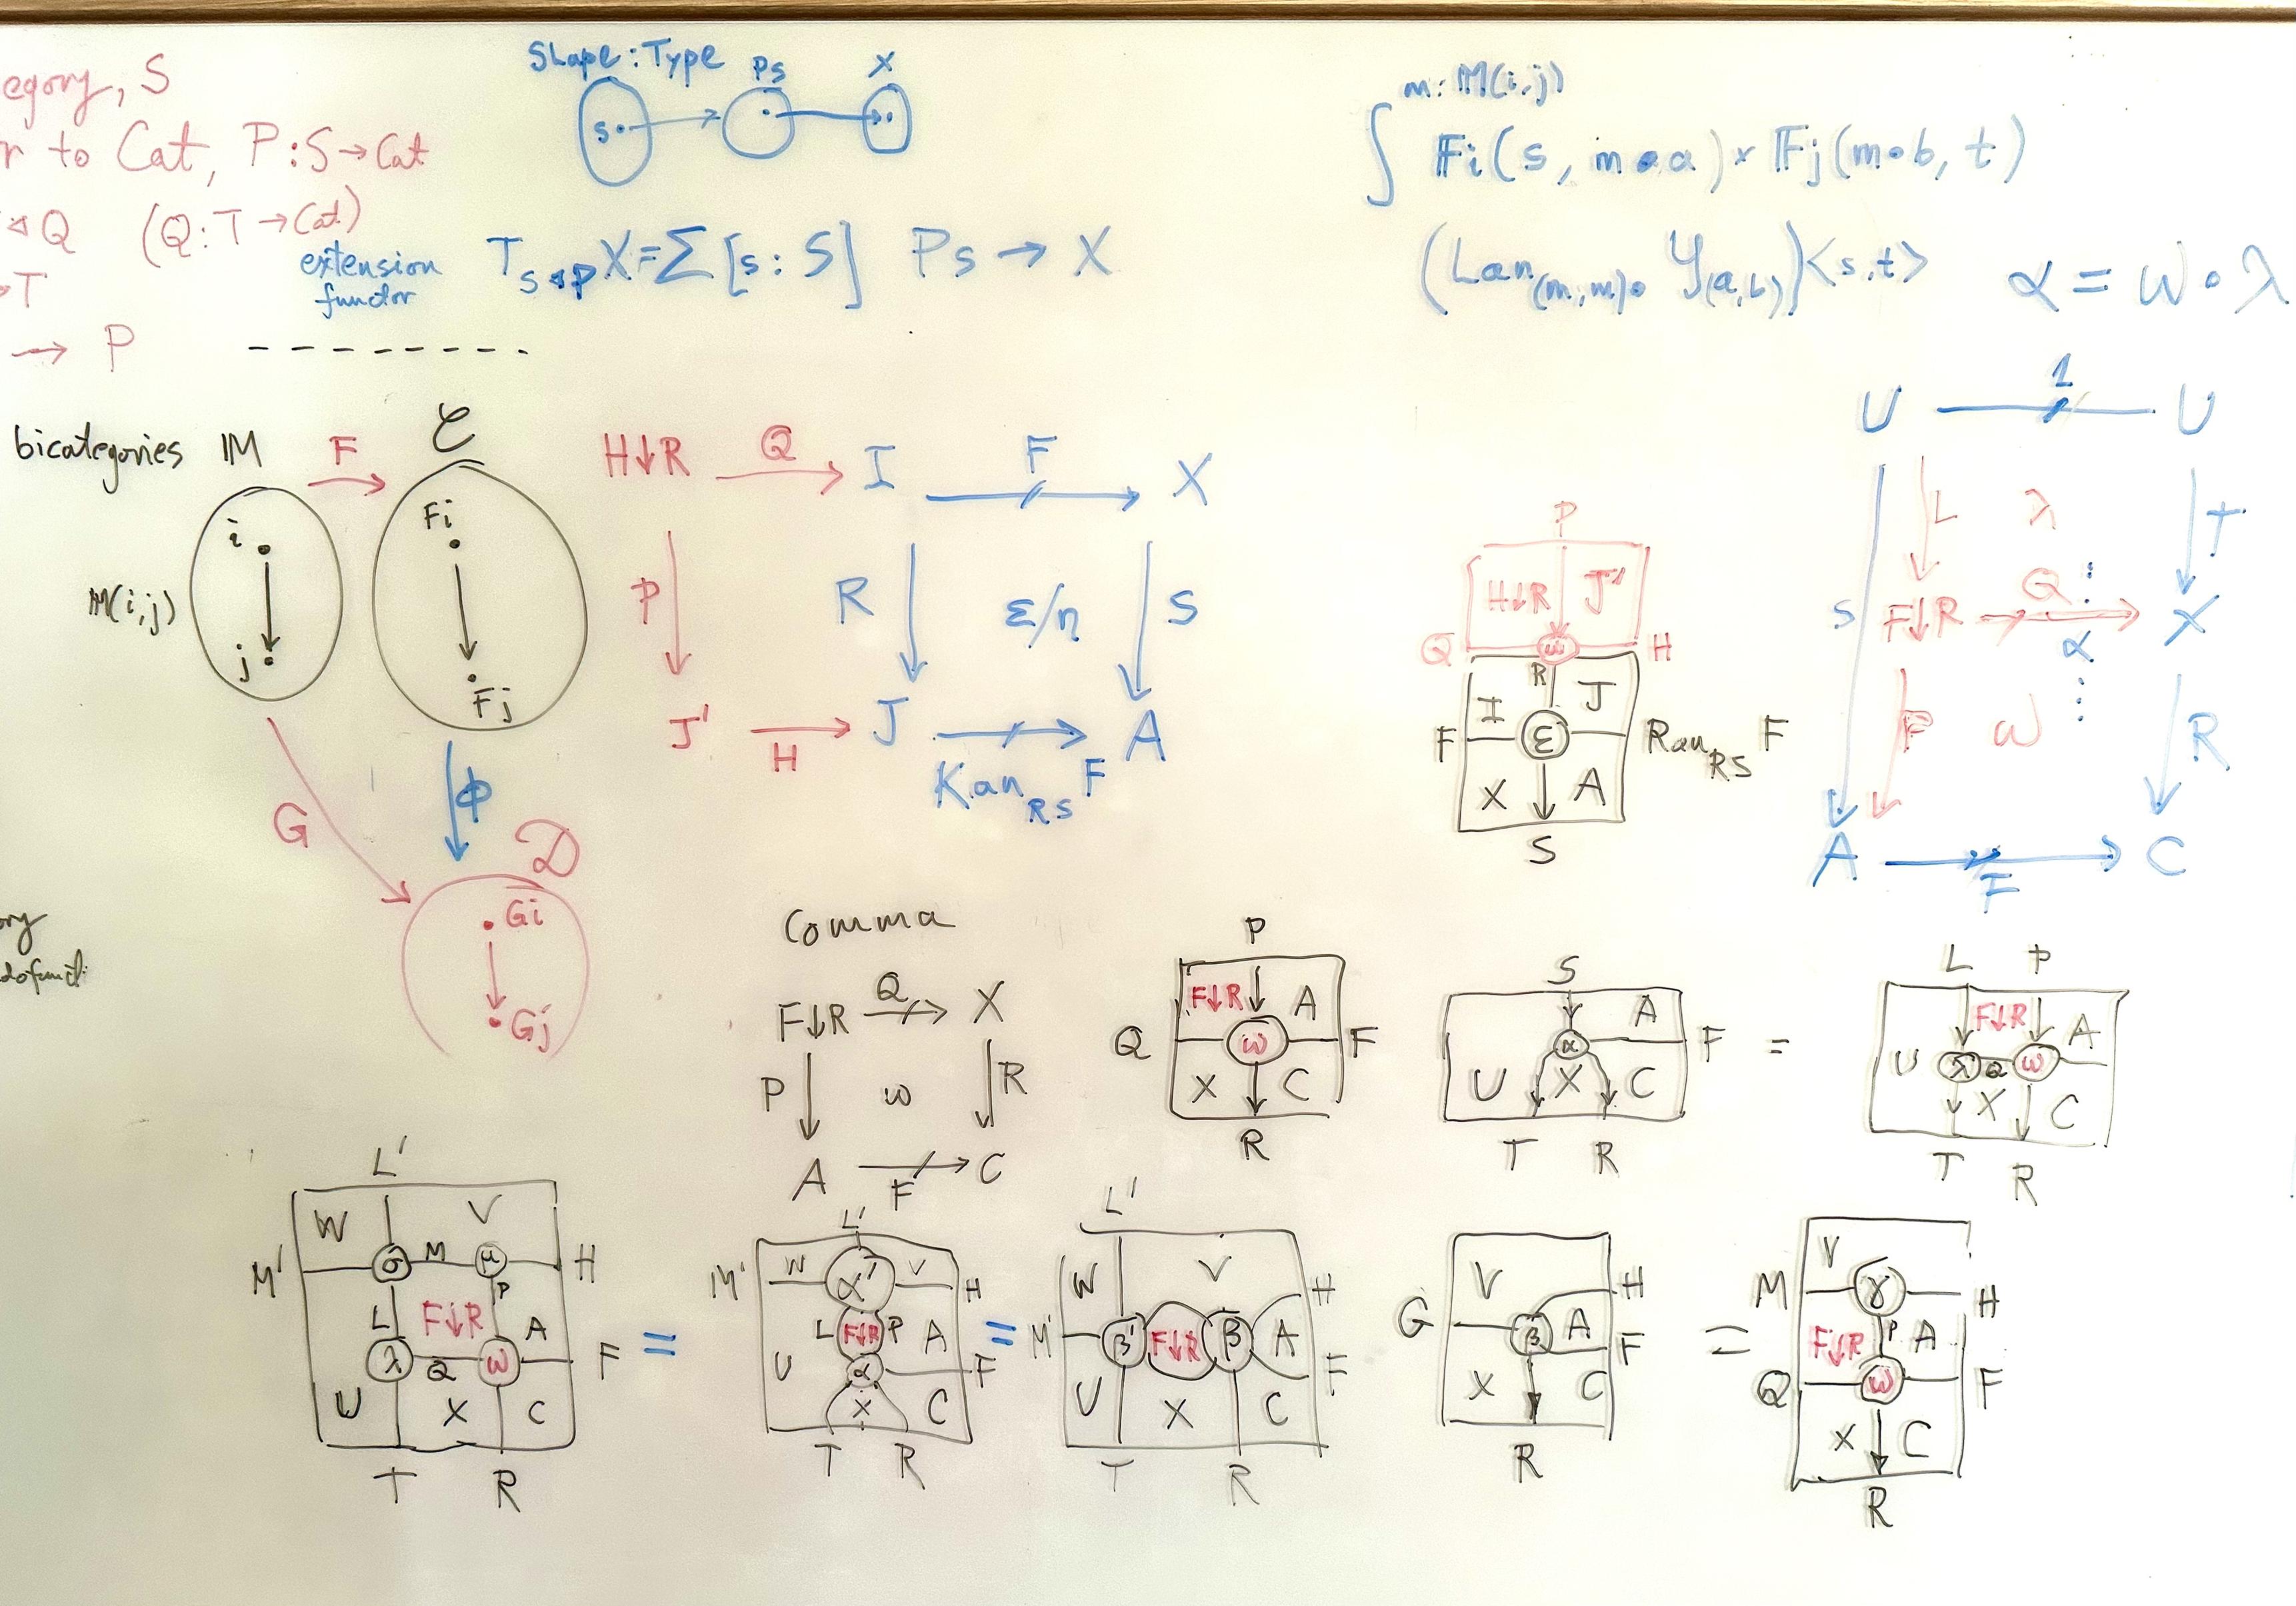 egory, S
r to Cat, P : S → Cat
◁ Q (Q : T → Cat)
→ T
→ P
Shape : Type
Ps
X
s
extension functor
T_{S◁P} X = Σ [s : S] Ps → X
- - - - - - - -
m : 𝕄(i,j)
∫ 𝔽i(s, m•a) × 𝔽j(m•b, t)
(Lan_{(m,m)•} 𝒴_{(a,b)})⟨s,t⟩
α = ω • λ
bicategories
𝕄
F
𝒞
i
Fi
𝕄(i,j)
j
Fj
G
Φ
𝒟
Gi
Gj
H↓R Q I F X
P R ε/η S
J' H J Kan_{RS} F A
P
H↓R J'
Q ω H
R
I J
F ε Ran_{RS} F
X A
S
U 1 U
L λ T
S F↓R Q X
α
P ω R
A F C
Comma
F↓R Q X
P ω R
A F C
P
F↓R A
Q ω F
X C
R
S
A
α F
U X C
T R
=
L P
F↓R A
U λ Q ω
X C
T R
L'
W V
M' σ M μ H
P
L F↓R A
λ Q ω F
U X C
T R
=
L'
M' W α' V H
L F↓R P A
U α F
X C
T R
=
L'
W V H
M' β' F↓R β A
F
U X C
T R
V H
G β A
F
X C
R
=
V
M γ H
F↓R P A
Q ω F
X C
R